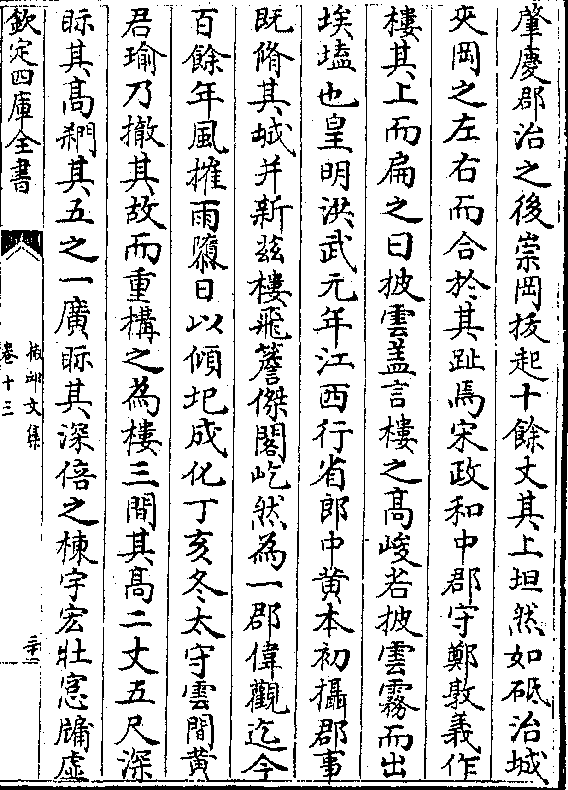 肇慶郡治之後崇岡拔起十餘丈其上坦然如砥治城
夾岡之左右而合於其趾焉宋政和中郡守鄭敦義作
樓其上而扁之曰披雲盖言樓之高峻若披雲霧而出
埃壒也皇明洪武元年江西行省郎中黄本初攝郡事
既脩其城并新兹樓飛薝傑閣屹然為一郡偉觀迄今
百餘年風摧雨隳日以傾圯成化丁亥冬太守雲間黄
君瑜乃撤其故而重構之為樓三間其高二丈五尺深
眎其高閷其五之一廣眎其深倍之棟宇宏壯窻牖虚
欽定四庫全書
文集
卷十三